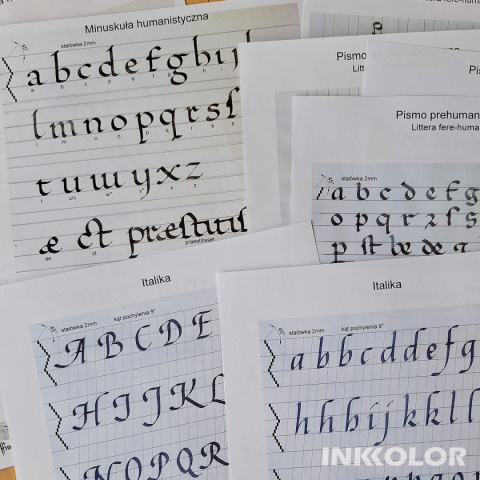 Minuskuła humanistyczna
stalówka 2mm
a b c d e f g h i j
l m n o p q r s ſ
t u ɯ y x z
æ ct præstitiſ
praestitisset
Pismo
Litt
Pis
Pismo prehuman
Littera fere-huma
stalówka 2mm
a b c d e f g
o p q r ꝛ ſ s
p ſt
Italika
stalówka 2mm kąt pochylenia 9°
A B C D E
H I J K L
N O P Q R
Italika
stalówka 2mm kąt pochylenia 9°
a b b c d d e f g
h h b i j k k l l
INKKOLOR